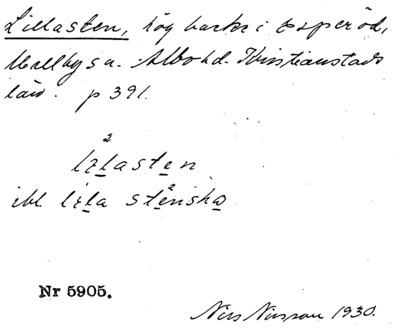 Lillasten, hög backe i Esperöd,
Mellby sn. Albo hd. Kristianstads
län. p 391.
2
lılasten
ibl lıla stenska
2
Nr 5905.
Nils Nilsson 1930.